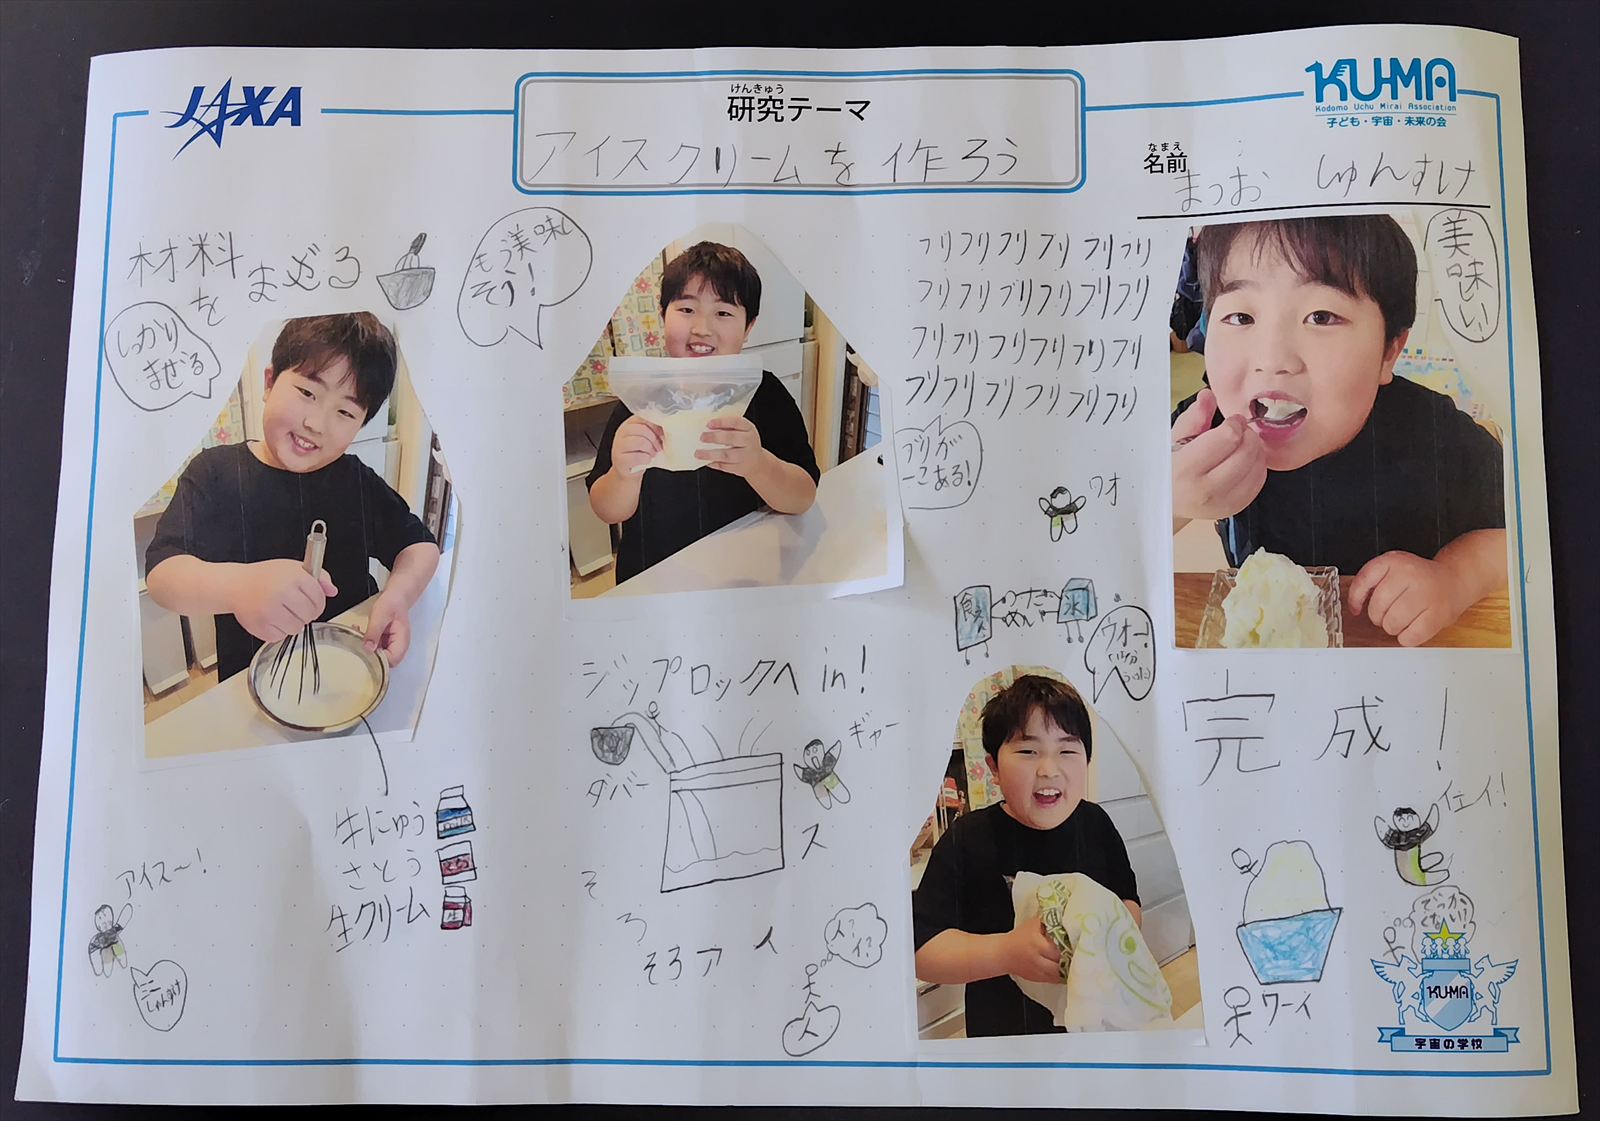 JAXA
けんきゅう
研究テーマ
アイスクリームを作ろう
KU-MA
Kodomo Uchu Mirai Association
子ども・宇宙・未来の会
なまえ
名前
まつお しゅんすけ
材料
を
まぜる
しっかり
まぜる
牛にゅう
さとう
生クリーム
アイス〜!
ミニ
しゅんすけ
もう美味し
そう!
ジップロックへ in!
ダバー
ギャー
そ
ろ
そろアイ
ス
フリフリフリフリフリフリ
フリフリフリフリフリフリ
フリフリフリフリフリフリ
フリフリフリフリフリフリ
ワオ
食えん
氷
ウオー!
美
味
しい
完成!
イェイ!
ワーイ
でっか
くない?
KU-MA
宇宙の学校